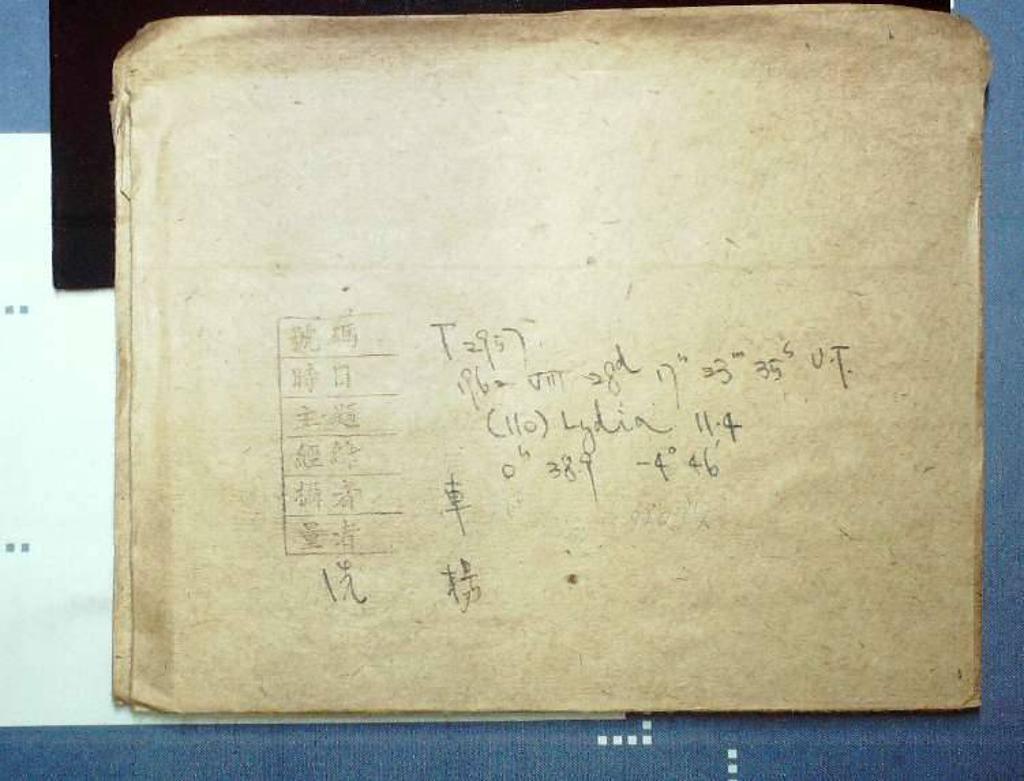 號碼 T 2957
時日 1962 VIII 28d 17h 23m 35s U.T.
主題 (110) Lydia 11.4
經緯 0h 38.9 -4° 46'
攝者 車
量者
洗 楊